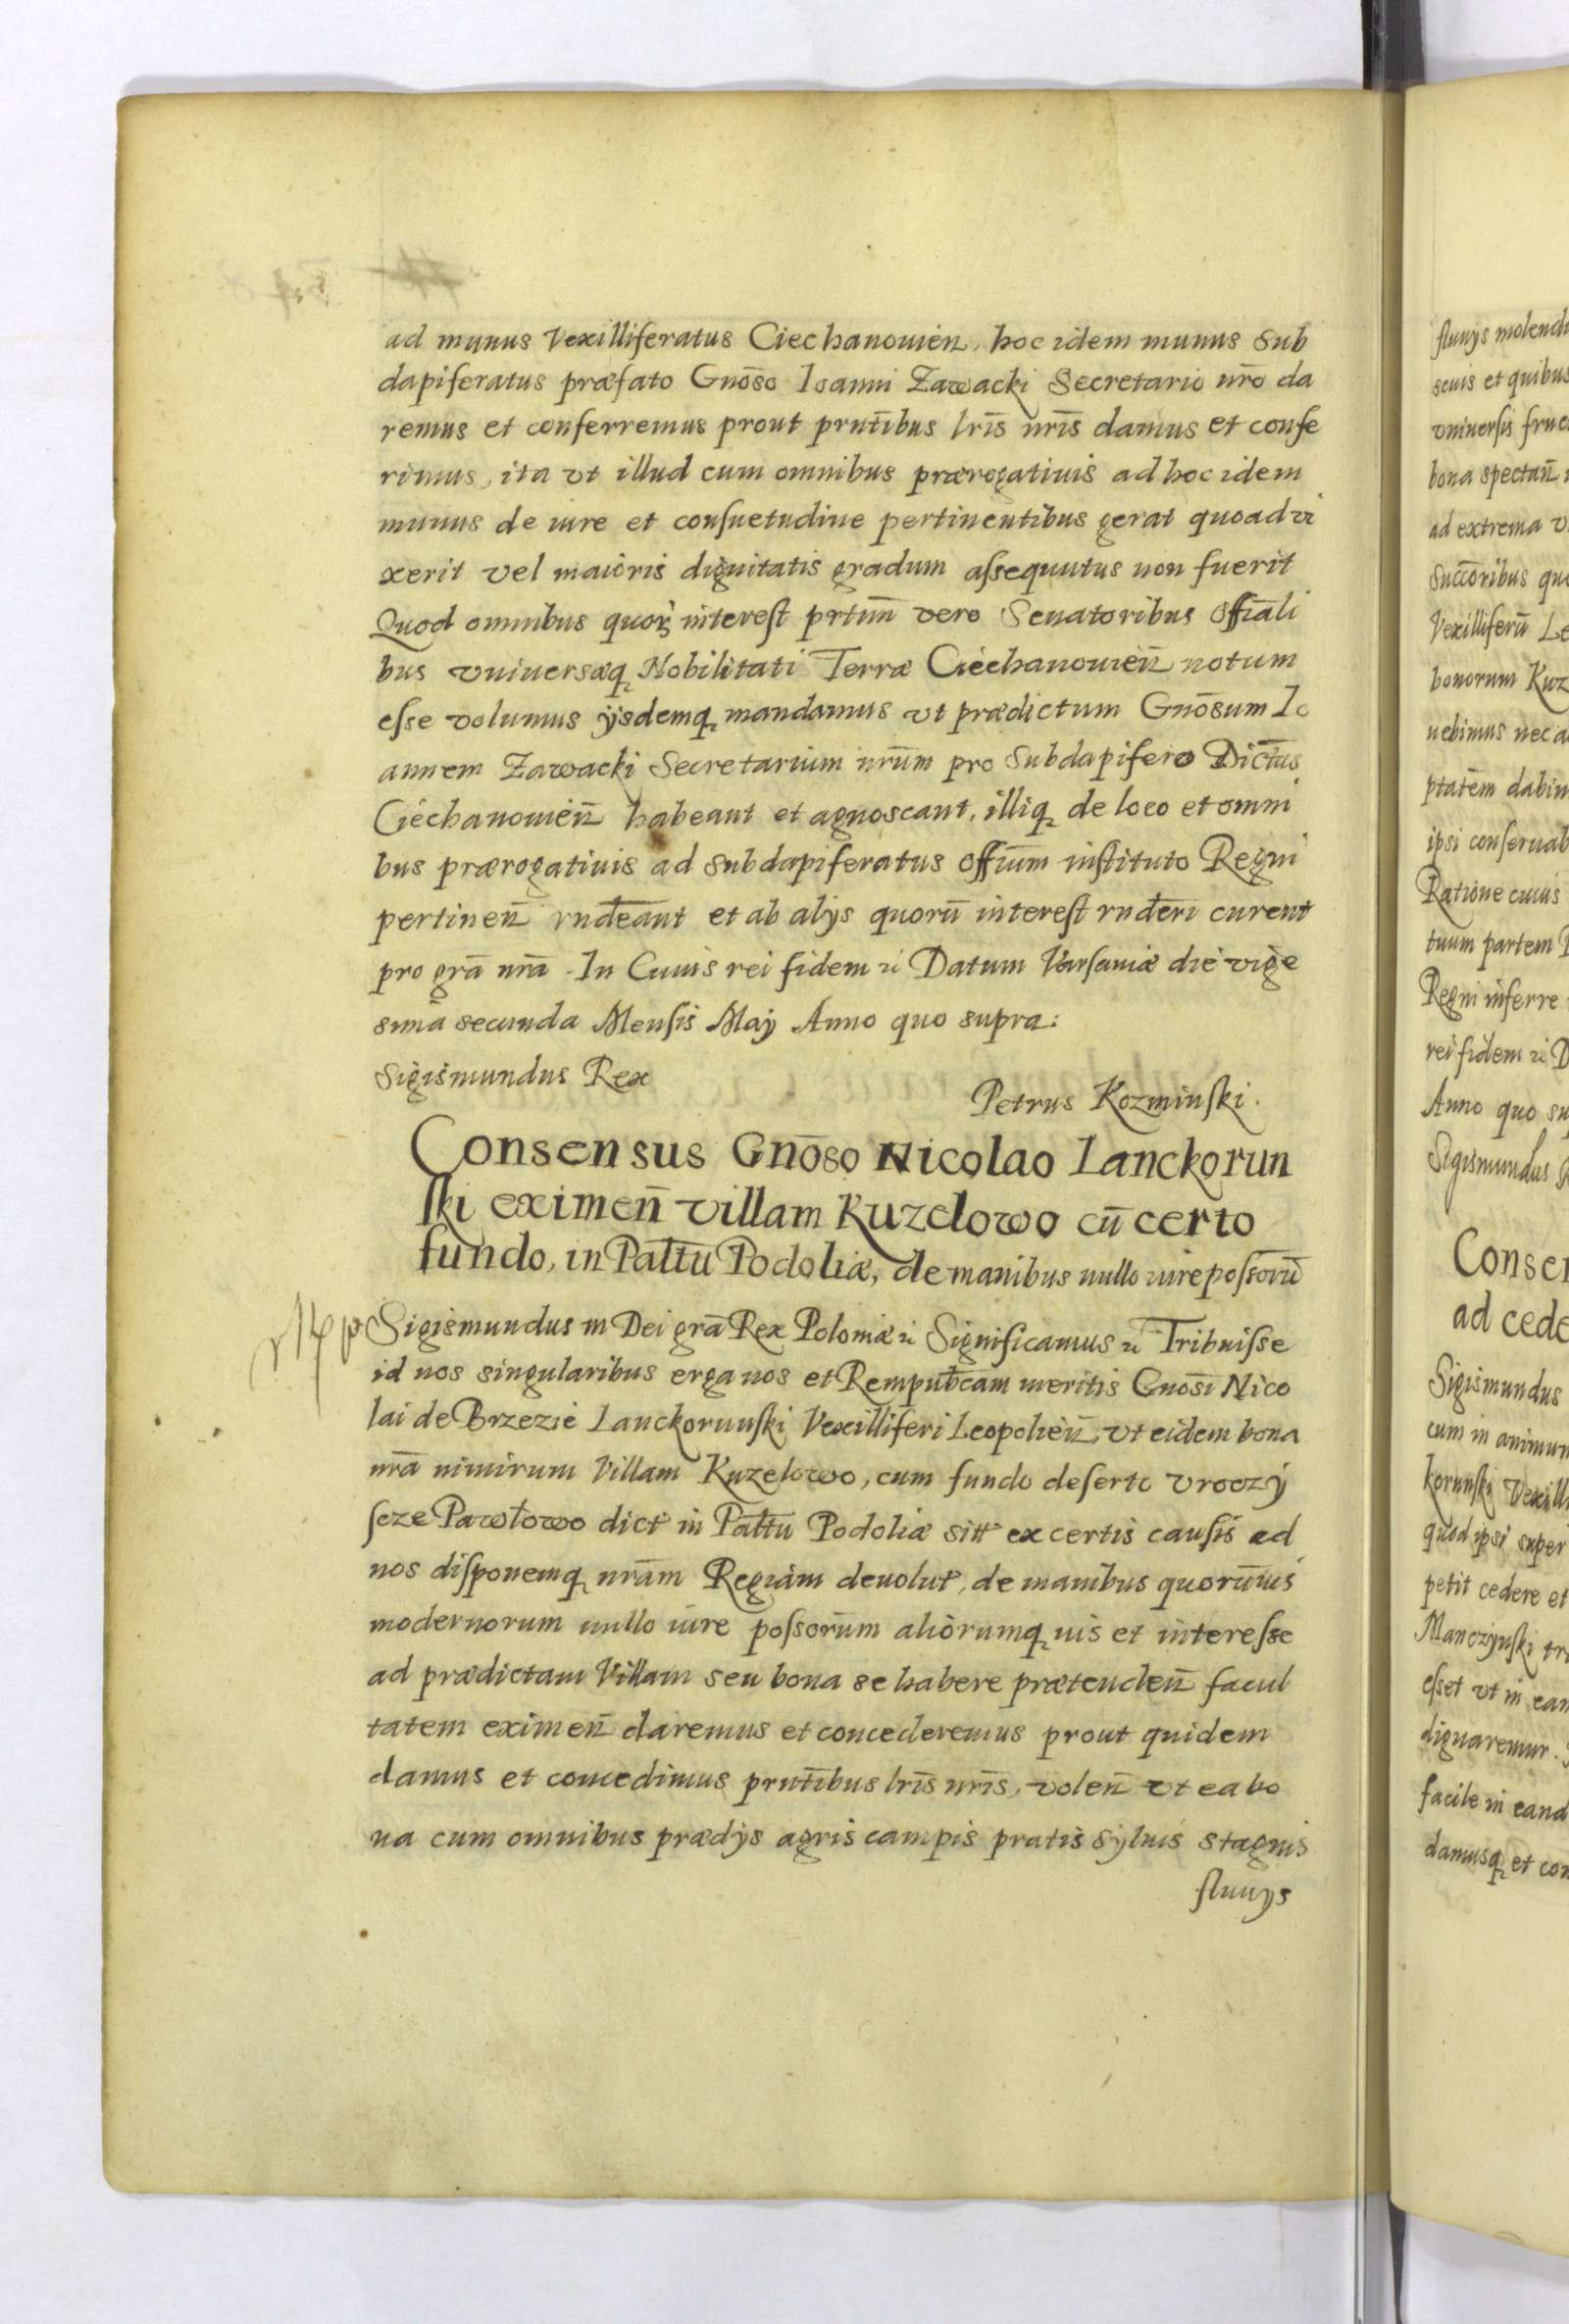 ad munus Vexilliferatus Ciechanouien, hoc idem munus Sub
dapiferatus præfato Gnōso Ioanni Zawacki Secretario nr̄o da
remus et conferremus prout prntībus lrīs nrīs damus et confe
rimus, ita vt illud cum omnibus prærogatiuis ad hoc idem
munus de iure et consuetudine pertinentibus gerat quoad vi
xerit vel maioris dignitatis gradum assequutus non fuerit
Quod omnibus quoꝝ interest prtīm vero Senatoribus Offīali
bus vniuersæq Nobilitati Terræ Ciechanouien̄ notum
esse volumus ÿsdemq mandamus vt prædictum Gnōsum Io
annem Zawacki Secretarium nrūm pro Subdapifero Dictus
Ciechanouien̄ habeant et agnoscant, illiq de loco et omni
bus prærogatiuis ad subdapiferatus offīum instituto Regni
pertinen̄ rndeānt et ab alÿs quorū interest rnderī curent
pro grā nrā. In Cuius rei fidem ꝛc Datum Varsauiæ die vige
sima secunda Mensis Maÿ Anno quo supra:
Sigismundus Rex
Petrus Kozminski.
Consensus Gnōso Nicolao Lanckorun
ski eximen̄ villam Kuzelowo cū certo
fundo, in Paltū Podoliæ, de manibus nullo iure possorū
Sigismundus III Dei grā Rex Poloniæ ꝛc Significamus ꝛc Tribuisse
id nos singularibus erga nos et Rempubcām meritis Gnosī Nico
lai de Brzezie Lanckorunski Vexilliferi Leopolien̄, vt eidem bona
nrā nimirum Villam Kuzelowo, cum fundo deserto vroczÿ
scze Pawłowo dict in Paltū Podoliæ sitt ex certis causis ad
nos disponemq nrām Regiam deuolut, de manibus quorūuis
modernorum nullo iure possorūm aliorumq uis et interesse
ad prædictam Villam seu bona se habere prætenden̄ facul
tatem eximen̄ daremus et concederemus prout quidem
damus et concedimus prntībus lrīs nrīs, volen̄ vt ea bo
na cum omnibus prædÿs agris campis pratis sÿluis stagnis
fluuÿs
fluuÿs molendi
scuis et quibus
vniuersis fruc
bona spectan̄
ad extrema v
Succōribus qu
Vexilliferū Le
bonorum Kuz
uebimus nec a
ptatēm dabim
ipsi conseruab
Ratione cuius
tuum partem
Regni inferre
rei fidem ꝛc D
Anno quo su
Sigismundus R
Consen
ad cede
Sigismundus
cum in animum
korunski Vexilli
quod ipsi super
petit cedere et
Manczynski tr
esset vt in ean
dignaremur.
facile in eand
damusq et con